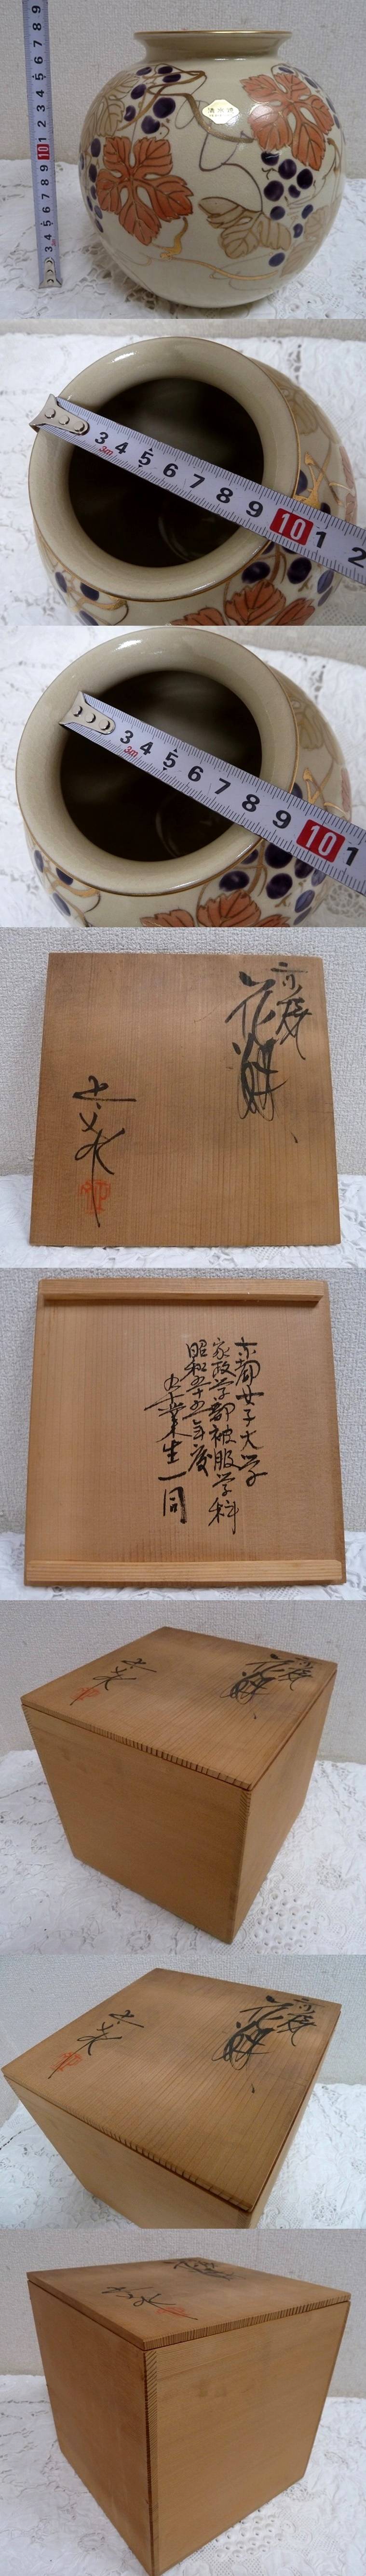 3 4 5 6 7 8 9 10 1 2 3 4 5 6 7 8 9
清水焼
3 4 5 6 7 8 9 10 1 2
3m
3 4 5 6 7 8 9 10 1
3m
京焼
花瓶
京都女子大学
家政学部被服学科
昭和五十五年度
卒業生一同
京焼
花瓶
京焼
花瓶